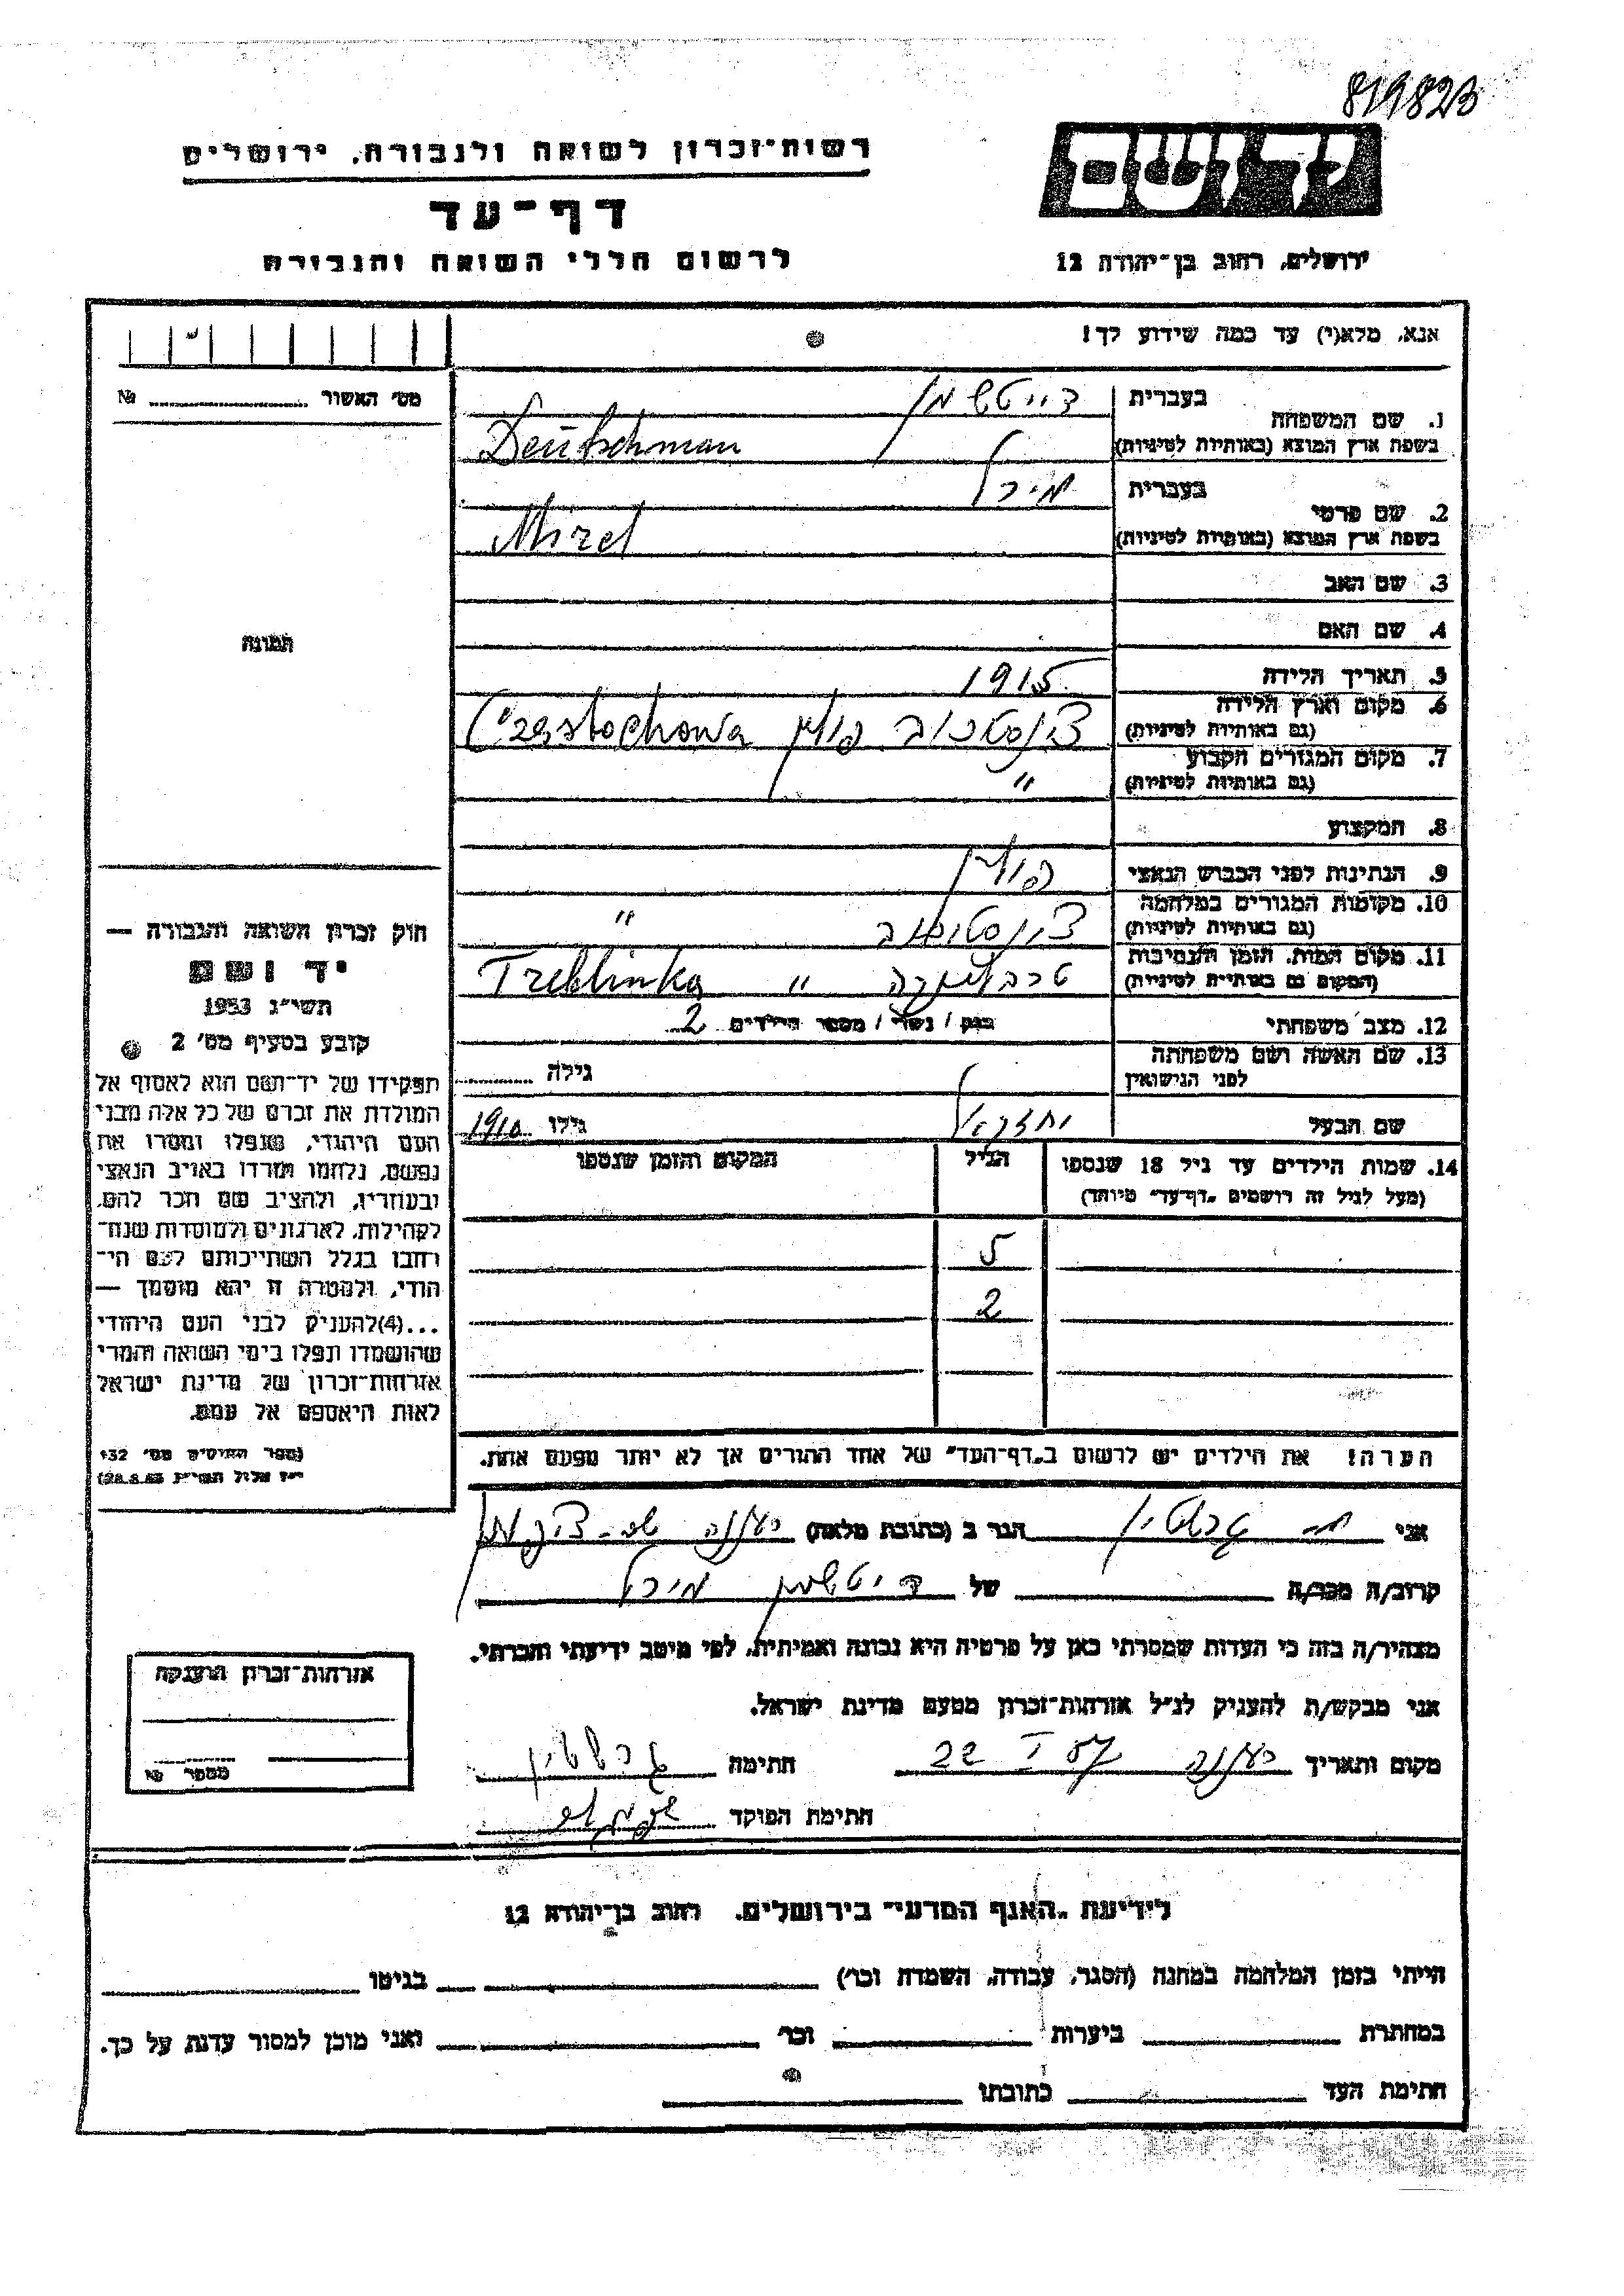 819823
רשות-זכרון לשואה ולגבורה, ירושלים
יד ושם
דף-עד
לרשום חללי השואה והגבורה
ירושלים, רחוב בן-יהודה 12
אנא, מלא(י) עד כמה שידוע לך!
מס׳ האשור № 
1. שם המשפחה בעברית דייטשמן
בשפת ארץ המוצא (באותיות לטיניות) Deutschman
2. שם פרטי בעברית מירל
בשפת ארץ המוצא (באותיות לטיניות) Mirel
3. שם האב
4. שם האם
תמונה
5. תאריך הלידה 1915
6. מקום וארץ הלידה (גם באותיות לטיניות) צ׳נסטכוב פולין Częstochowa
7. מקום המגורים הקבוע (גם באותיות לטיניות) "
8. המקצוע
9. הנתינות לפני הכבוש הנאצי פולין
10. מקומות המגורים במלחמה (גם באותיות לטיניות) "
11. מקום המות, הזמן והנסיבות (המקום גם באותיות לטיניות) טרבלינקה " Treblinka
12. מצב משפחתי רווק / נשוי / מספר הילדים 2
13. שם האשה ושם משפחתה לפני הנישואין גילה
שם הבעל יחזקאל גילו 1910
14. שמות הילדים עד גיל 18 שנספו הגיל המקום והזמן שנספו
(מעל לגיל זה רושמים "דף-עד" מיוחד)
5
2
הערה! את הילדים יש לרשום ב"דף-העד" של אחד ההורים אך לא יותר מפעם אחת.
חוק זכרון השואה והגבורה —
יד ושם
תשי״ג 1953
קובע בסעיף מס׳ 2
תפקידו של יד-ושם הוא לאסוף אל
המולדת את זכרם של כל אלה מבני
העם היהודי, שנפלו ומסרו את
נפשם, נלחמו ומרדו באויב הנאצי
ובעוזריו, ולהציב שם וזכר להם,
לקהילות, לארגונים ולמוסדות שנח־
רבו בגלל השתייכותם לעם הי־
הודי, ולמטרה זו יהא מוסמך —
...(4)להעניק לבני העם היהודי
שהושמדו ונפלו בימי השואה והמרי
אזרחות-זכרון של מדינת ישראל
לאות היאספם אל עמם.
(ספר החוקים מס׳ 132
י״ז אלול תשי״ג 28.8.53)
אני גרשטין הגר ב (כתובת מלאה) רעננה
קרוב/ה מכר/ה של דייטשמן מירל
מצהיר/ה בזה כי העדות שמסרתי כאן על פרטיה היא נכונה ואמיתית, לפי מיטב ידיעתי והכרתי.
אני מבקש/ת להעניק לנ״ל אזרחות-זכרון מטעם מדינת ישראל.
מקום ותאריך רעננה 22 I 57 חתימה גרשטין
חתימת הפוקד
אזרחות-זכרון הוענקה
מספר №
לידיעת "האגף המדעי" בירושלים, רחוב בן-יהודה 12
הייתי בזמן המלחמה במחנה (הסגר, עבודה, השמדה וכו׳) בגיטו
במחתרת ביערות וכו׳ ואני מוכן למסור עדות על כך.
חתימת העד כתובתו